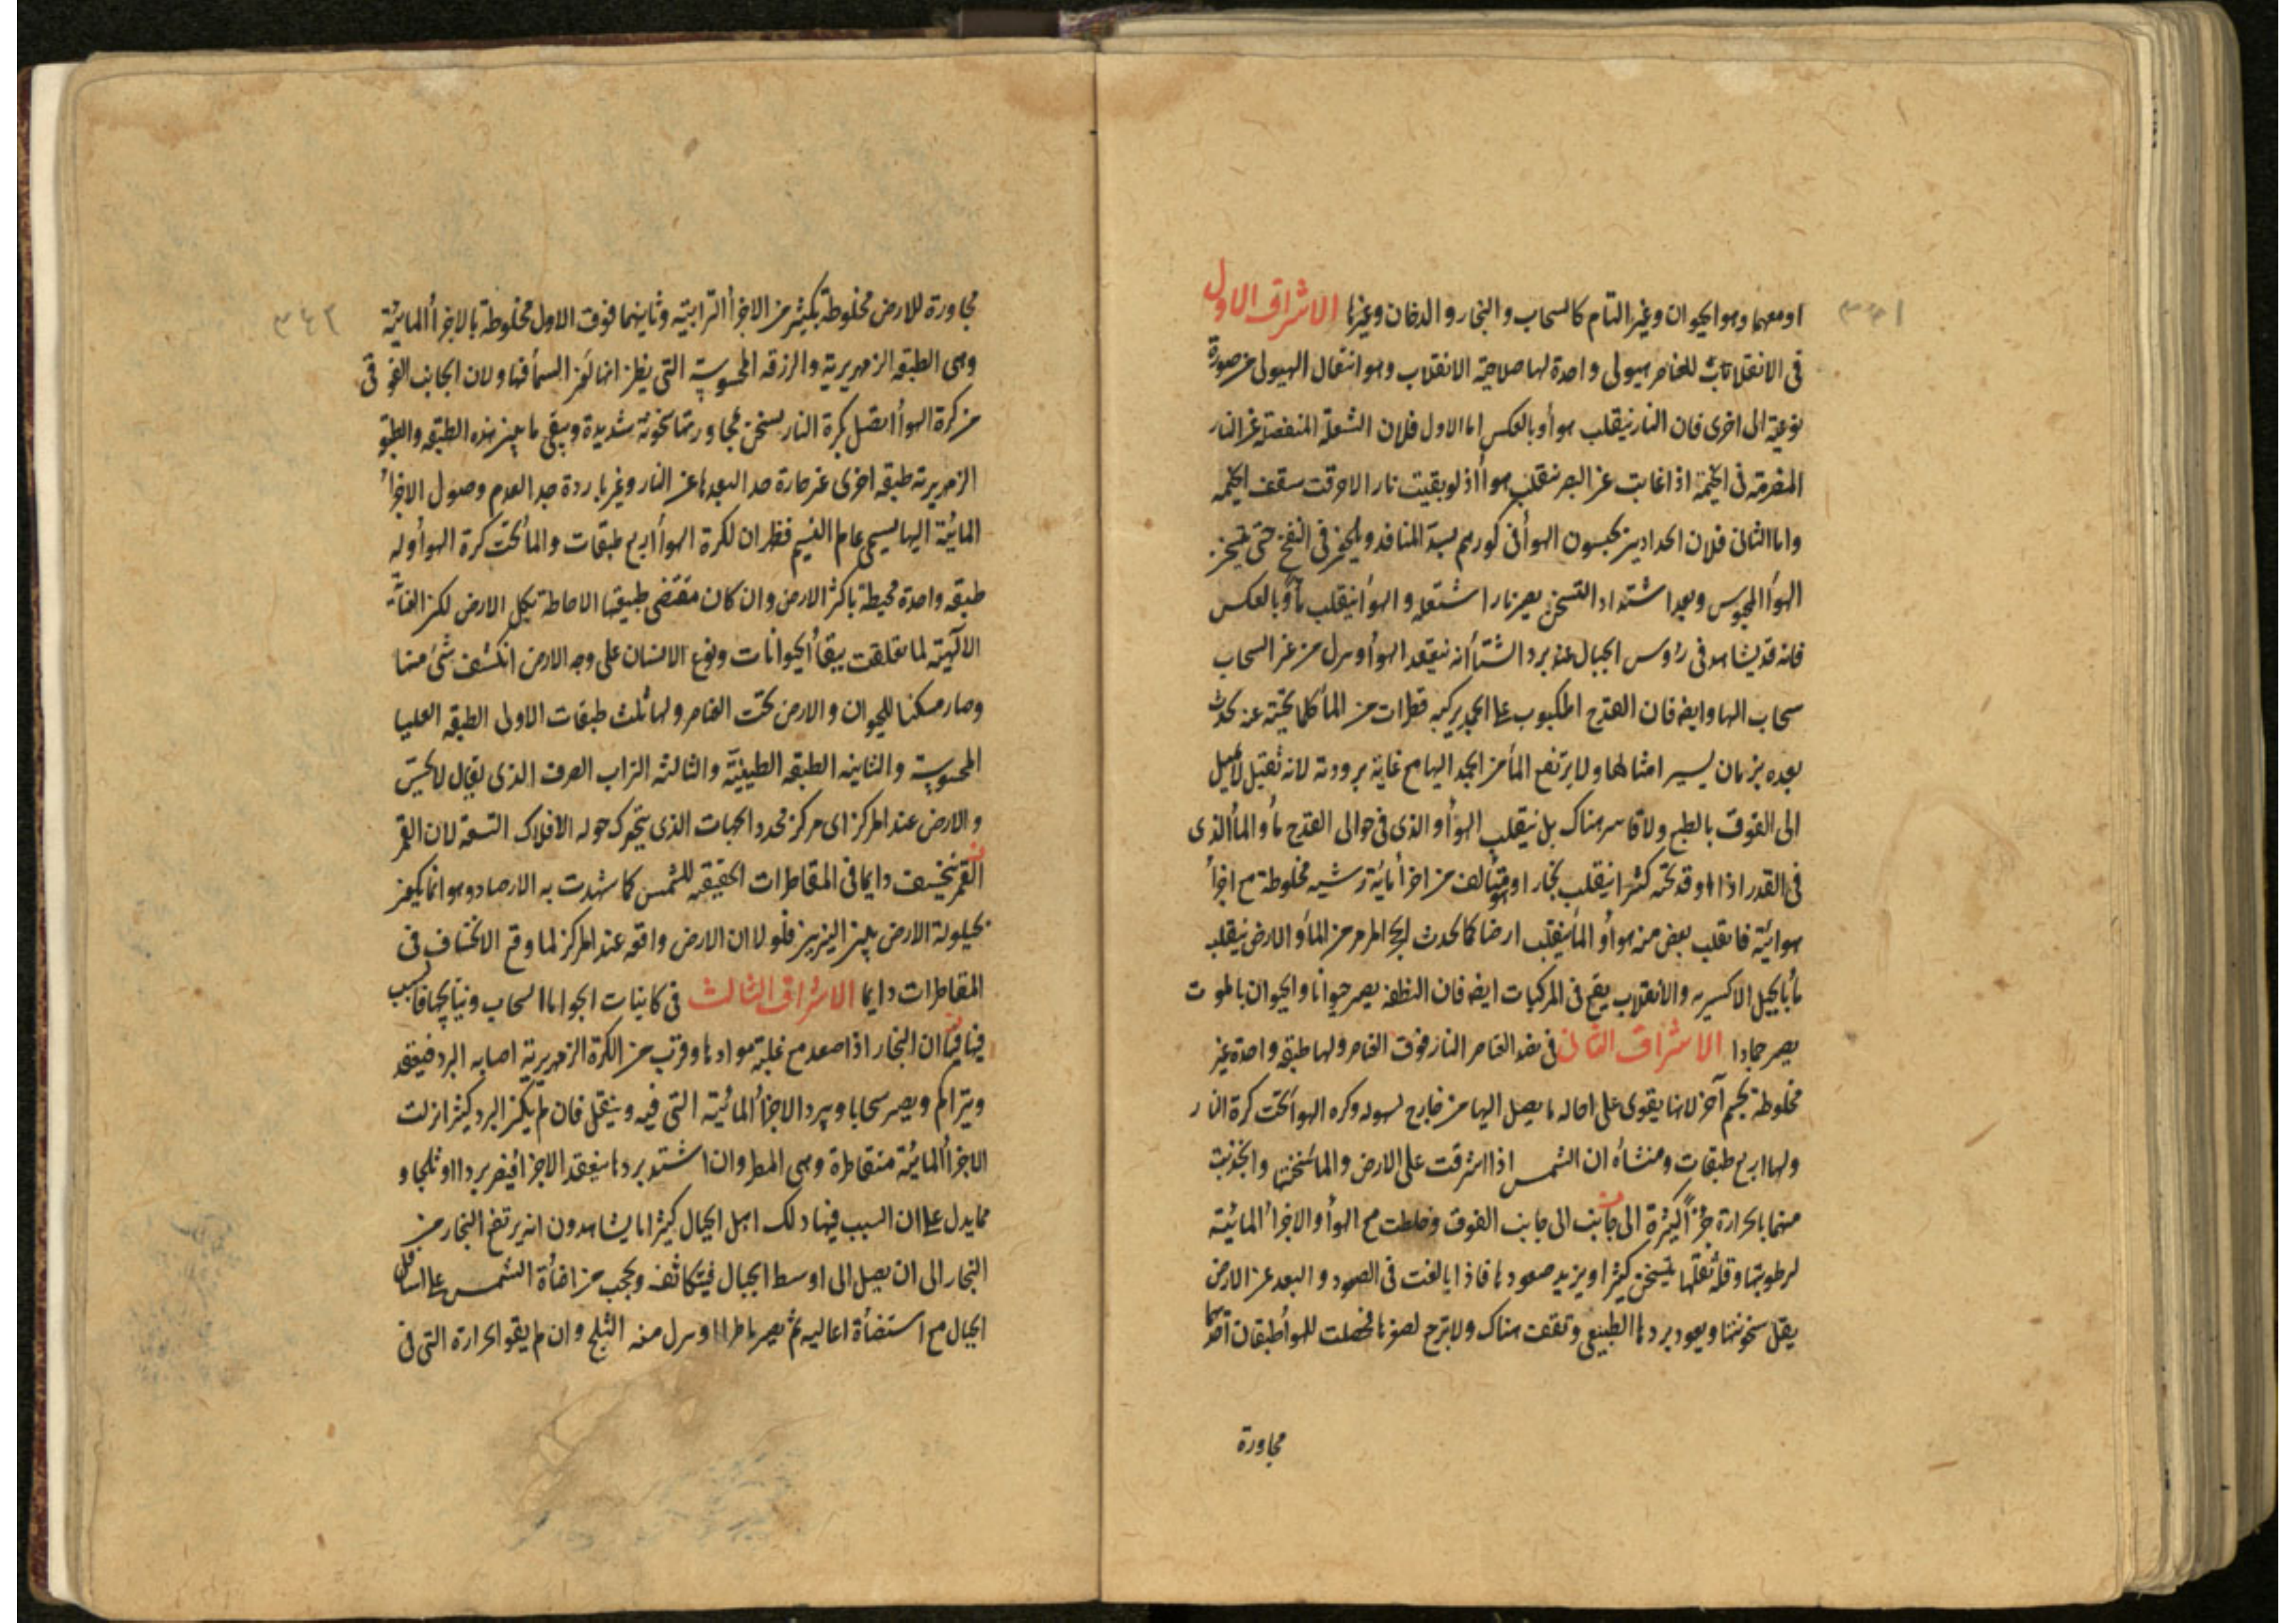 او معهما وهو الحيوان وغير التام كالسحاب والبخار والدخان وغيرها الاشراق الاول
فى الانقلابات للعناصر هيولى واحدة لها صلاحية الانقلاب وهو انتقال الهيولى من صورة
نوعية الى اخرى فان النار ينقلب هوأ وبالعكس اما الاول فلان الشعلة المنفصلة عن النار
فى الخيمة اذا غابت عن البصر ينقلب هوأ اذ لو بقيت نار الاحرقت سقف الخيمه
واما الثانى فلان الحدادين يحبسون الهوأ فى كورهم بسد المنافد فى النفخ حتى يسخن
الهوأ المحبوس وبعد اشتداد التسخن يصير نارا شتعله والهوأ ينقلب مأ وبالعكس
فانه قد يشاهد فى رؤس الجبال عند برد الشتأ انه ينعقد الهوأ من غير السحاب
سحاب وايضه فان القدح المكبوب على الجمد يركبه قطرات من المأ كلما نحيته عنه يحدث
بعده بزمان يسير امثالها ولا يرتفع المأ من الجمد اليها مع غاية برودته لانه ثقيل لا يميل
الى الفوق بالطبع ولا قاسر هناك بل ينقلب الهوأ والذى فى حوالى القدح مأ والمأ الذى
فى القدر اذا اوقد تحته كثيرا ينقلب بخارا وهو يتألف من اجزأ مائية رشيه مخلوطة مع اجزأ
هوائية فانقلب بعض منه هوأ والمأ ينقلب ارضا كما يحدث الحجر المرمر من المأ والارض ينقلب
مأ بالحيل الاكسيريه والانقلاب يقع فى المركبات ايضه فان النطفه يصير حيوانا والحيوان بالموت
يصير جمادا الاشراق الثانى فى نضد العناصر النار فوق العناصر ولها طبقه واحدة غير
مخلوطة بجسم آخر لانها يقوى على احاله ما يصل اليها من خارج لسهوله وكره الهوأ تحت كرة النار
ولها اربع طبقات ومنشاه ان الشمس اذا اشرقت على الارض والمأ سخنتها وانجذبت
منهما بالحرارة جزأ كثيرة الى جانب الى جانب الفوق وخلطت مع الهوأ والاجزأ المائية
لرطوبتها وقلة ثقلها يتسخن كثيرا ويزيد صعودها فاذا بالغت فى الصعود والبعد عن الارض
يقل سخونتها ويعود بردها الطبيعى وتقفت هناك فحصلت للهوأ طبقان احدهما
مجاورة
٣٤٢
مجاورة للارض مخلوطة بكثير من الاجزأ الترابية وثانيهما فوق الاول مخلوطة بالاجزأ المائية
وهى الطبقه الزمهريرية والزرقه المحسوسة التى يظن انها لون السمأ فيها ولان الجانب الفوقى
من كرة الهوأ اتصل بكرة النار يسخن بمجاورتها سخونة شديدة ويبقى ما بين هذه الطبقه والطبقه
الزمهريرية طبقه اخرى غير حارة حد البعدها عن النار وغير باردة جد العدم وصول الاجزأ
المائية اليها يسمى عام النسيم فظهر ان لكرة الهوأ اربع طبقات والمأ تحت كرة الهوأ وله
طبقه واحدة محيطة باكثر الارض وان كان مقتضى طبيعتها الاحاطة بكل الارض لكن العناية
الالهية لما تعلقت ببقأ الحيوانات ونوع الانسان على وجه الارض انكشف شئ منها
وصار مسكنا للحيوان والارض تحت العناصر ولها ثلث طبقات الاولى الطبقه العليا
المحسوسة والثانيه الطبقه الطينية والثالثه التراب الصرف الذى يقال
والارض عند المركز اى مركز محدد الجهات الذى يتحرك حوله الافلاك التسعة لان القمر
القمر ينخسف دايما فى المقاطرات الحقيقيه للشمس كما شهدت به الارصاد وهو انما يكون
بحيلولة الارض بين النيرين فلو لا ان الارض واقعه عند المركز لما وقع الانخساف فى
المقاطرات دايما الاشراق الثالث فى كاينات الجو اما السحاب وما فالسبب
فيها فيها ان البخار اذا صعد مع غلبة موادها وقرب من الكرة الزمهريرية اصابه البرد فيعقد
ويتراكم ويصير سحابا ويبرد الاجزأ المائية التى فيه ويثقل فان لم يكن البرد كثيرا نزلت
الاجزأ المائية متقاطرة وهى المطر وان اشتد بردها ينعقد الاجزأ فيصير بردا او ثلجا و
مما يدل على ان السبب فيها ذلك اهل الجبال كثيرا ما يشاهدون انه يرتفع البخار من
البخار الى ان يصل الى اوسط الجبال فيتكاثف ويحجب من اضأة الشمس على اسافل
الجبال مع استضأة اعاليه ثم يصير ماطرا منه الثلج وان لم يقو الحرارة التى فى